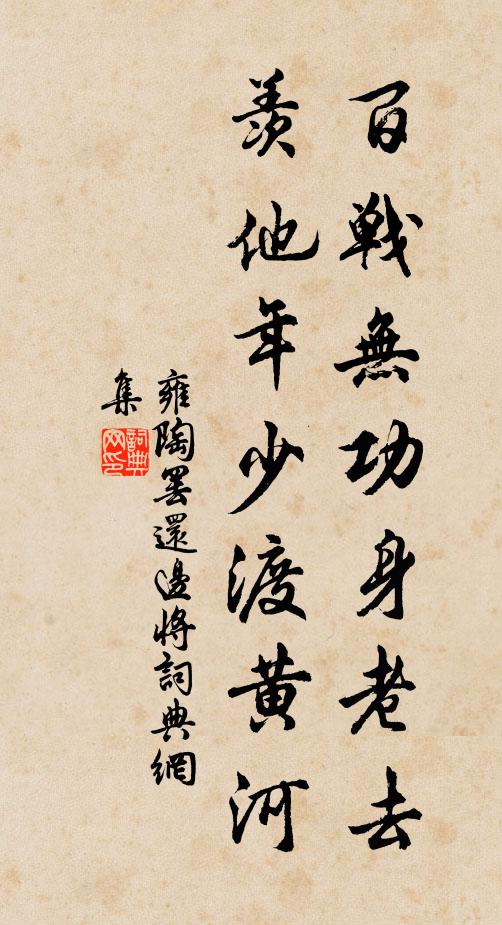 百戰無功身老去
羨他年少渡黃河
雍陶罷還邊將詞典網
集
詞典
网印